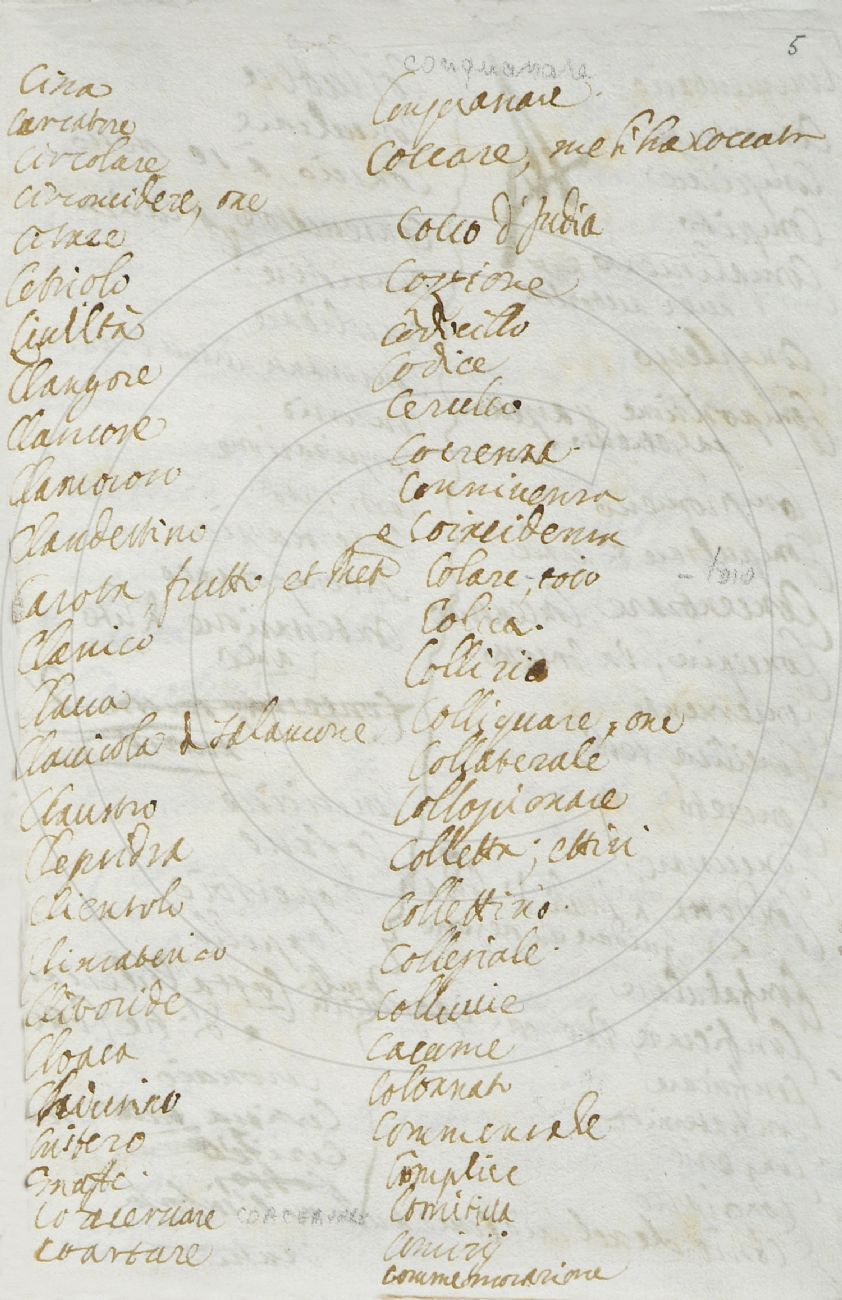 5
Cina
Circolare
Circoncidere, one
Citare
Cetriolo
Civiltà
Clangore
Clamore
Clamoroso
Clandestino
Carota, frutto, et met
Clavicola d Salamone
Claustro
Clepsidra
Clientolo
Climaterico
Clitoride
Cloaca
Coacervare coacervare
Coartare
conquassare
Coccare, me l'ha coccata
Cocco d'India
Cozzione
Codicillo
Codice
Ceruleo
Coerenza
Conniventa
e Coincidenza
Colare, toio - toio
Colica
Collirio
Colliquare, one
Collaterale
Collozionare
Colletta, ettivi
Collettivo
Collegiale
Colluvie
Cacume
Colonnato
Commensale
Complice
Comitiva
Comizij
Commemorazione